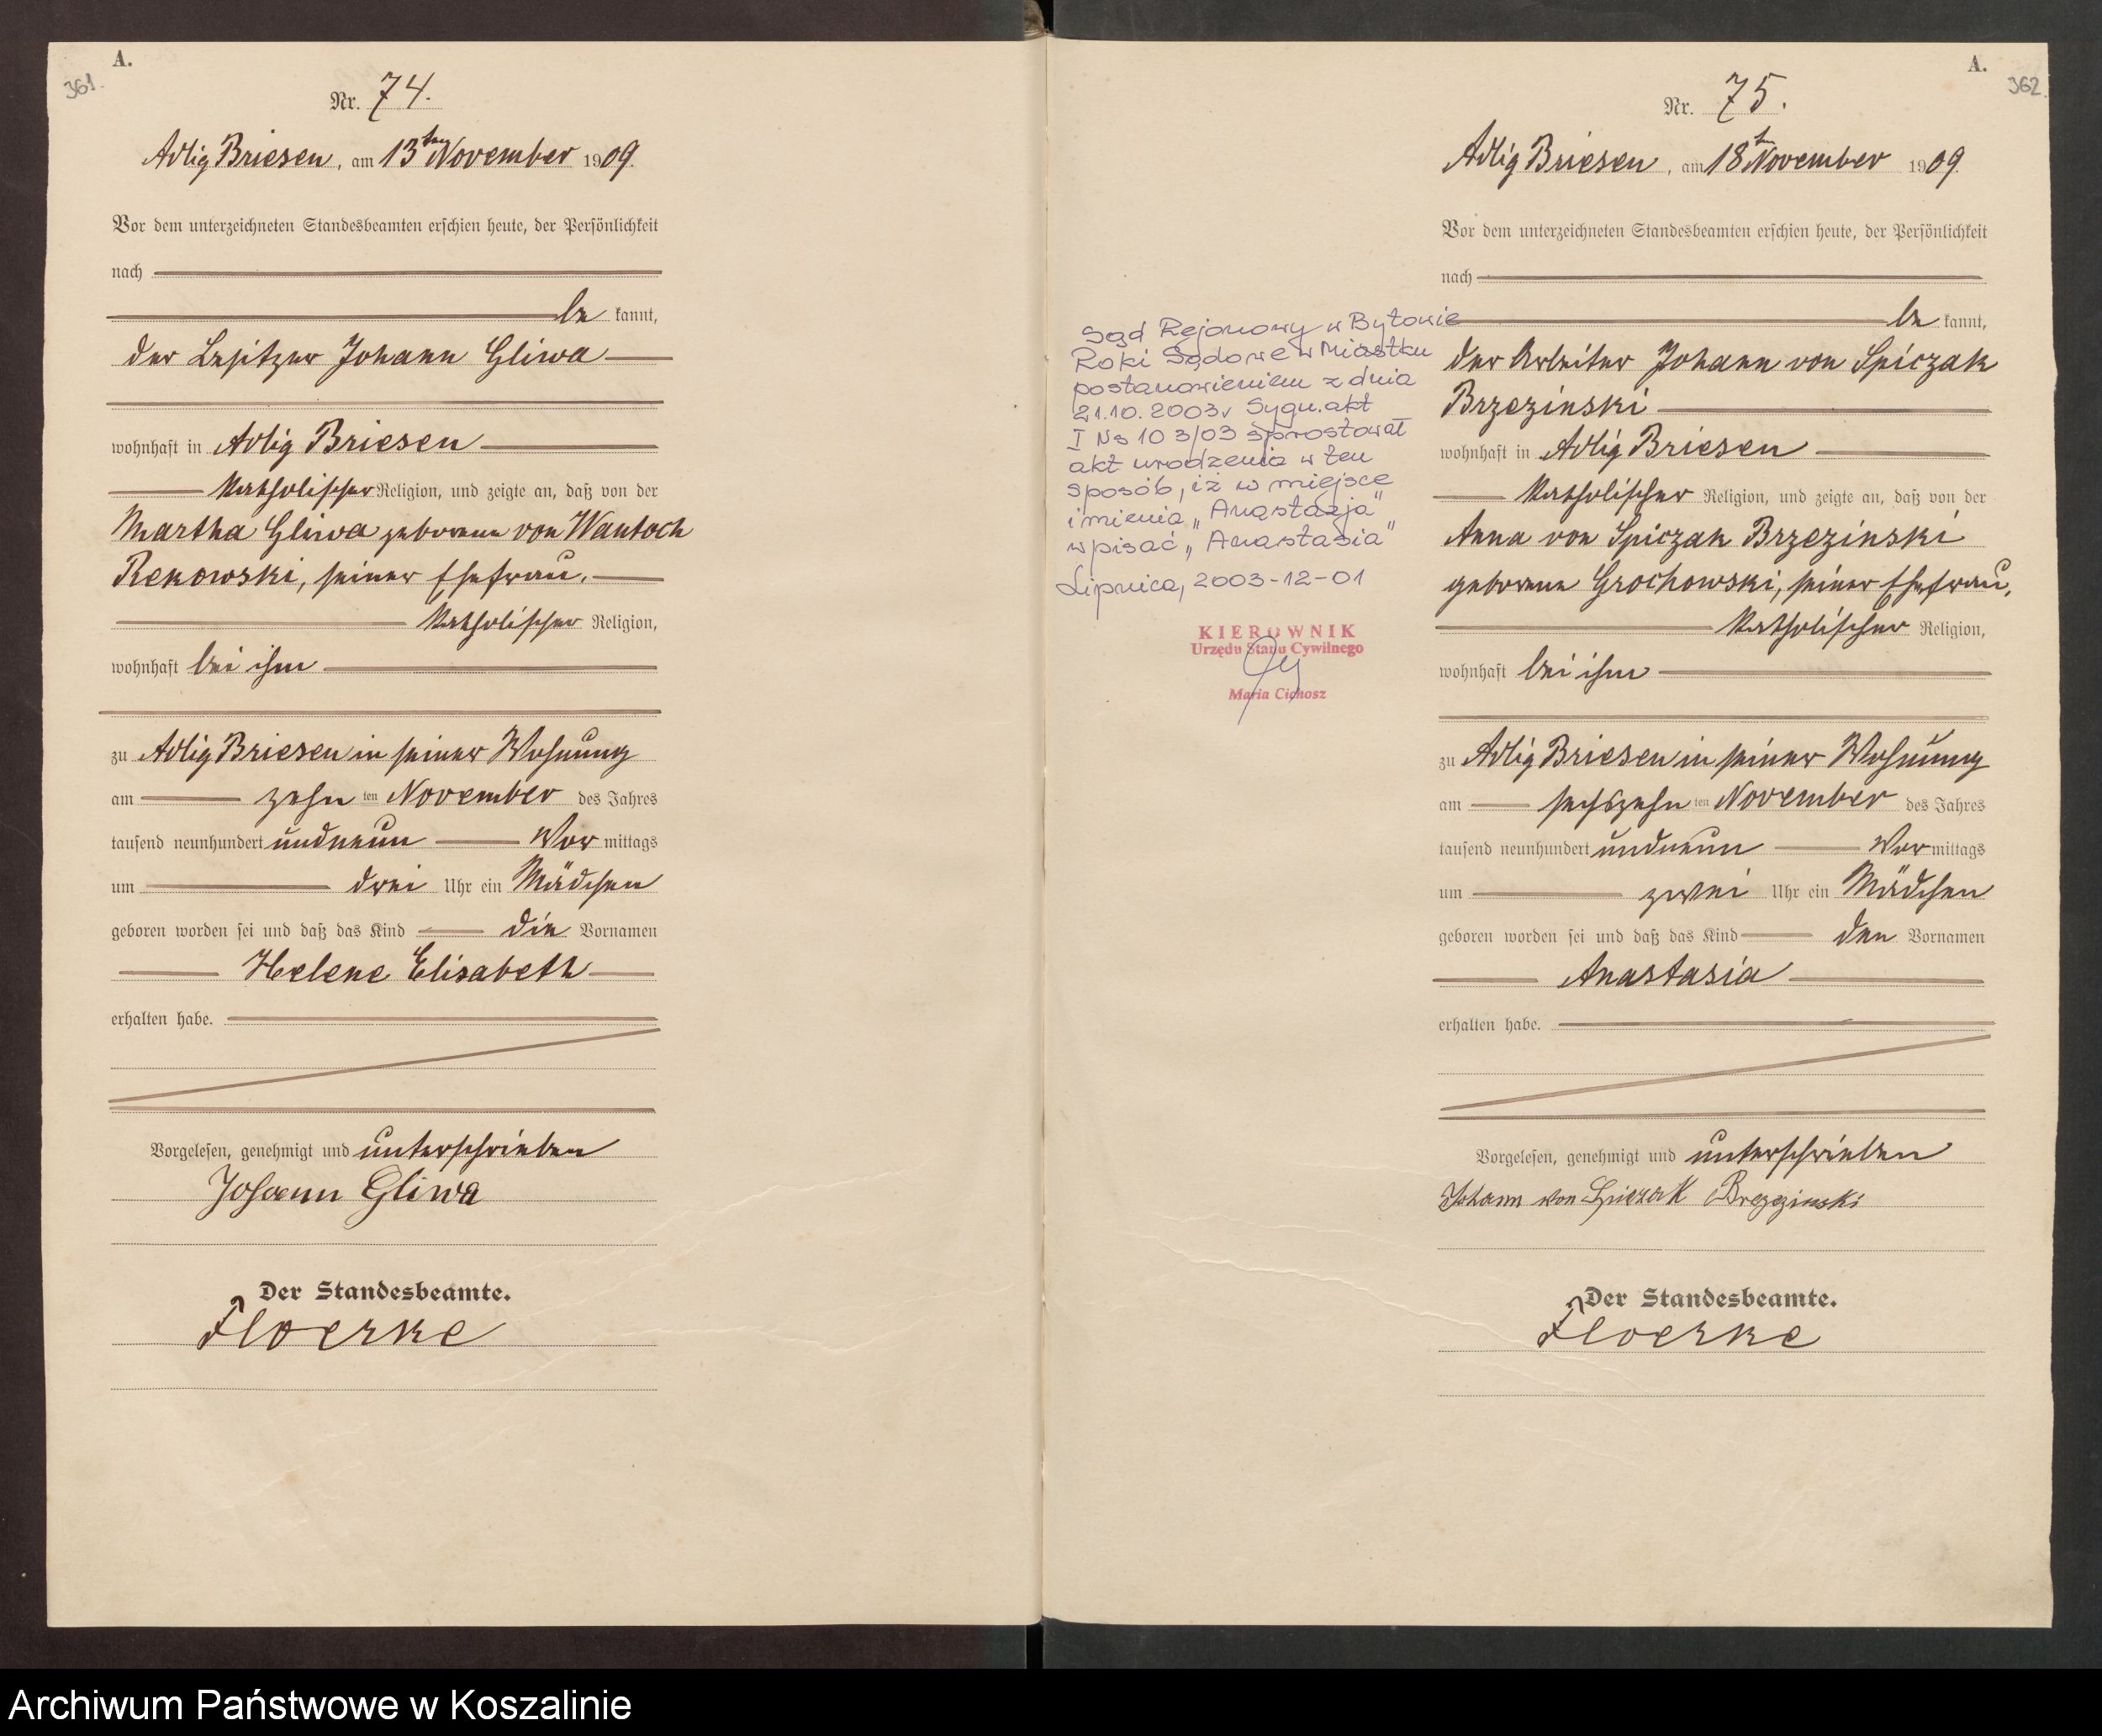 A.
361.
Nr. 74.
Adlig Briesen, am 13ten November 1909.
Vor dem unterzeichneten Standesbeamten erschien heute, der Persönlichkeit
nach
be kannt,
der Besitzer Johann Gliwa
wohnhaft in Adlig Briesen
katholischer Religion, und zeigte an, daß von der
Martha Gliwa geborene von Wantoch
Rekowski, seiner Ehefrau,
katholischer Religion,
wohnhaft bei ihm
zu Adlig Briesen in seiner Wohnung
am zehn ten November des Jahres
tausend neunhundert undneun Vor mittags
um drei Uhr ein Mädchen
geboren worden sei und daß das Kind die Vornamen
Helene Elisabeth
erhalten habe.
Vorgelesen, genehmigt und unterschrieben
Johann Gliwa
Der Standesbeamte.
Floerke
Sąd Rejonowy w Bytowie
Roki Sądowe w Miastku
postanowieniem z dnia
21.10.2003r Sygn. akt
I Ns 103/03 sprostował
akt urodzenia w ten
sposób, iż w miejsce
imienia „Anastazja"
wpisać „Anastasia"
Lipnica, 2003-12-01
KIEROWNIK
Urzędu Stanu Cywilnego
Maria Cichosz
A.
362.
Nr. 75.
Adlig Briesen, am 18ten November 1909.
Vor dem unterzeichneten Standesbeamten erschien heute, der Persönlichkeit
nach
be kannt,
der Arbeiter Johann von Spiczak
Brzezinski
wohnhaft in Adlig Briesen
katholischer Religion, und zeigte an, daß von der
Anna von Spiczak Brzezinski
geborene Grochowski, seiner Ehefrau,
katholischer Religion,
wohnhaft bei ihm
zu Adlig Briesen in seiner Wohnung
am sechszehn ten November des Jahres
tausend neunhundert undneun Vor mittags
um zwei Uhr ein Mädchen
geboren worden sei und daß das Kind den Vornamen
Anastasia
erhalten habe.
Vorgelesen, genehmigt und unterschrieben
Johann von Spiczak Brzezinski
Der Standesbeamte.
Floerke
Archiwum Państwowe w Koszalinie